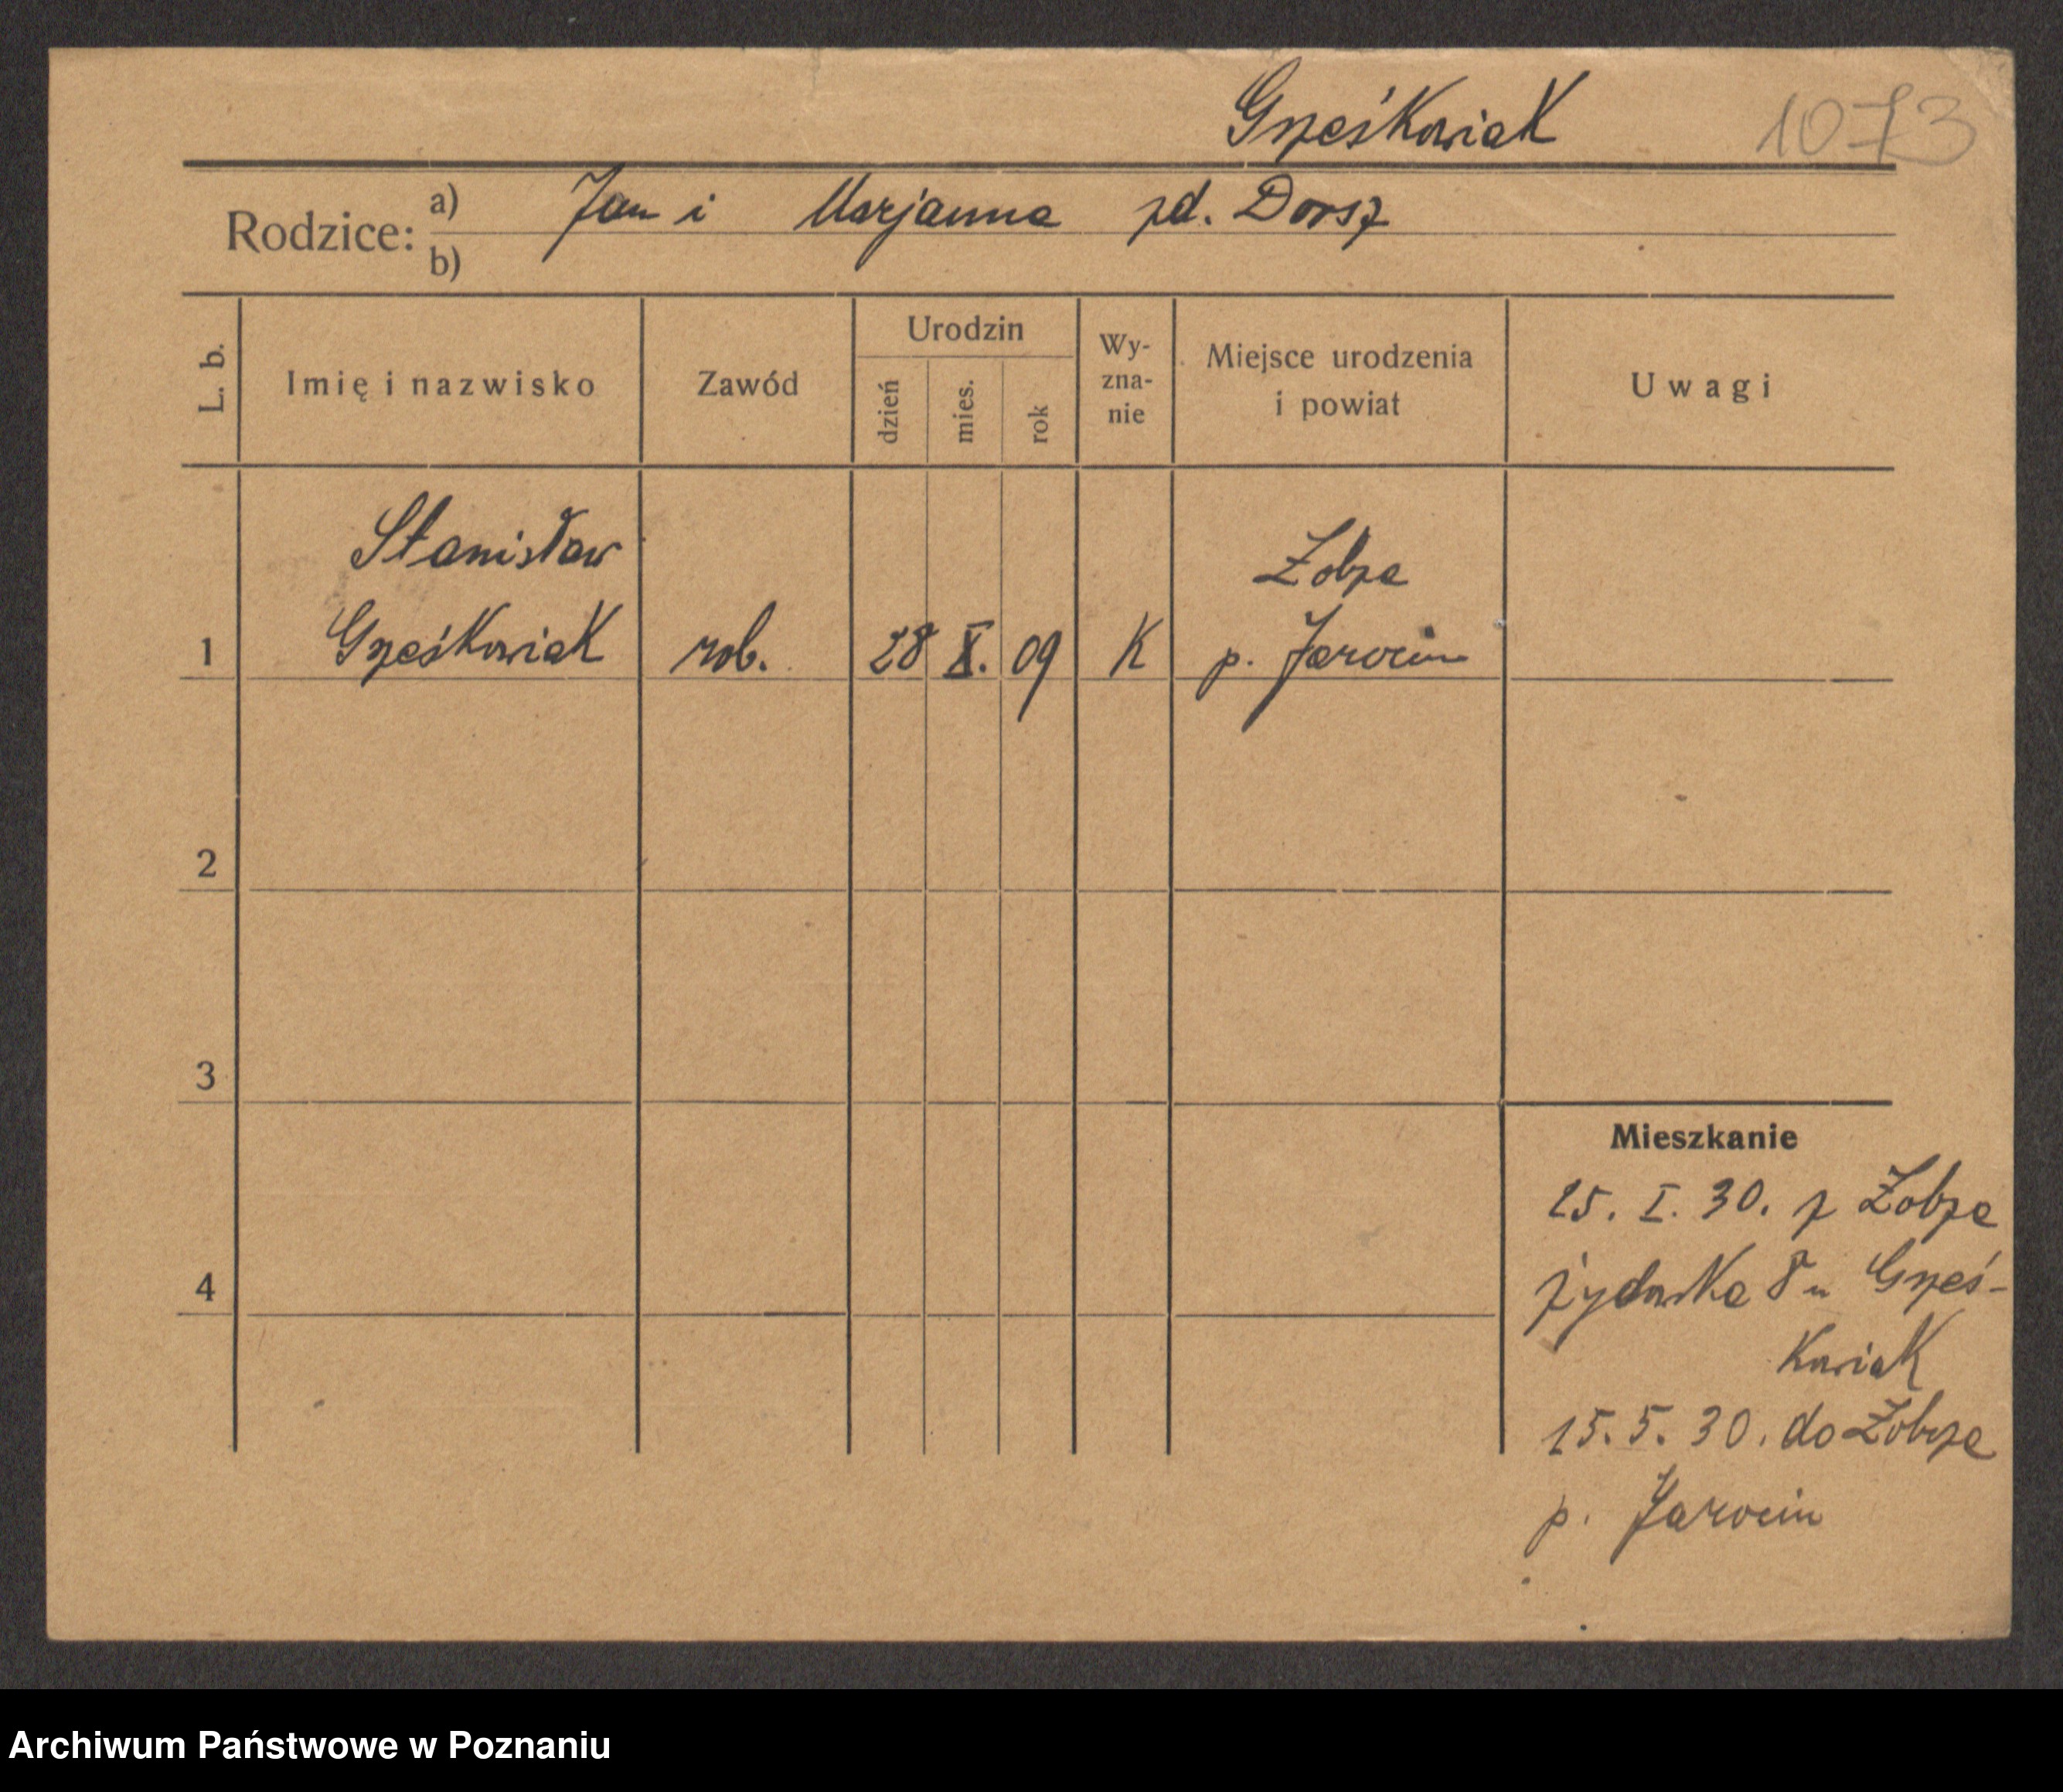 Grześkowiak 1073
Rodzice: a) Jan i Marjanna zd. Dorsz
b)
L. b. Imię i nazwisko Zawód Urodzin dzień mies. rok Wy-zna-nie Miejsce urodzenia i powiat Uwagi
Stanisław Łobza
1 Grześkowiak rob. 28 X. 09 K p. Jarocin
2
3
Mieszkanie
25. I. 30. z Łobza
4 Żydowska 8 u Grześ-
kowiak
15. 5. 30. do Łobza
p. Jarocin
Archiwum Państwowe w Poznaniu